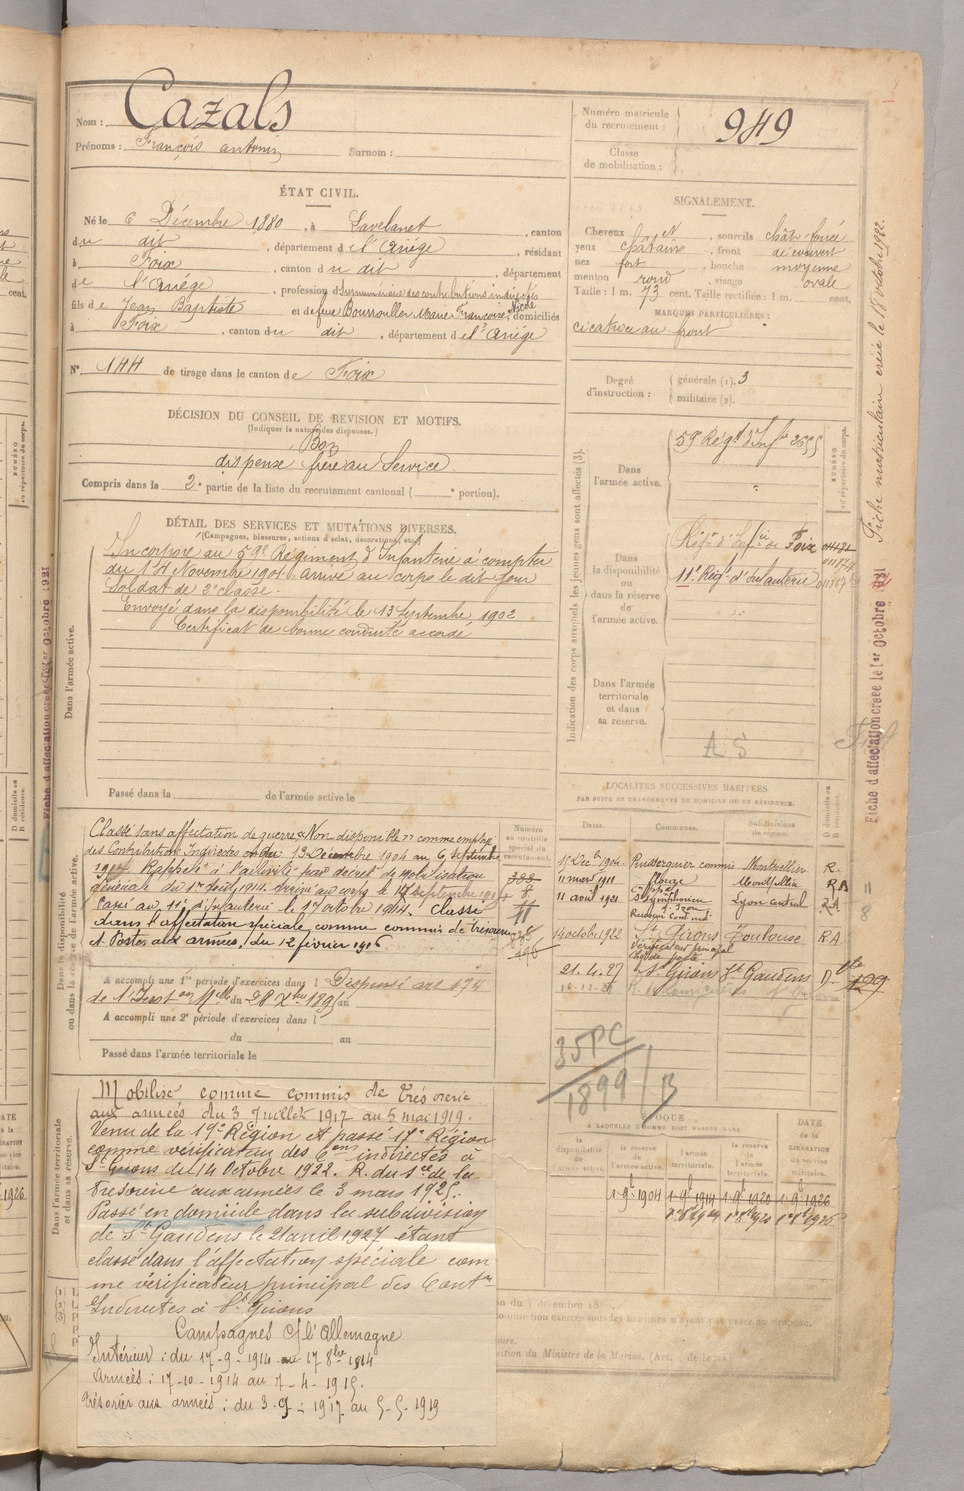 Nom : Cazals
Prénoms : François antonin Surnom :
Numéro matricule du recrutement : 949
Classe de mobilisation :
ÉTAT CIVIL.
Né le 6 Décembre 1880, à Lavelanet, canton
du dit, département de l'Ariège, résidant
à Foix, canton du dit, département
de l'Ariège, profession d Surnuméraire des contributions indirectes
fils de Jean Baptiste et de feue Marie Françoise, domiciliés
à Foix, canton du dit, département de l'Ariège
N° 144 de tirage dans le canton de Foix
SIGNALEMENT.
Cheveux et, sourcils chât. foncé
yeux châtains, front découvert
nez fort, bouche moyenne
menton rond, visage ovale
Taille : 1 m. 73 cent. Taille rectifiée : 1 m. cent.
MARQUES PARTICULIÈRES :
cicatrice au front
Degré d'instruction : générale (1). 3
militaire (2).
DÉCISION DU CONSEIL DE REVISION ET MOTIFS.
(Indiquer la nature des dispenses.)
Bon
dispensé frère au Service
Compris dans la 2e partie de la liste du recrutement cantonal ( e portion).
DÉTAIL DES SERVICES ET MUTATIONS DIVERSES.
(Campagnes, blessures, actions d'éclat, décorations, etc.)
Dans l'armée active.
Incorporé au 59e Régiment d'Infanterie à compter
du 14 Novembre 1901 arrivé au corps le dit jour
Soldat de 2e classe.
Envoyé dans la disponibilité le 13 Septembre 1902
Certificat de bonne conduite accordé
Passé dans la de l'armée active le
Indication des corps auxquels les jeunes gens sont affectés (3).
Dans l'armée active.
59e Régt d'Infie
Dans la disponibilité ou dans la réserve de l'armée active.
Régt d'Infie de Foix
11e Régt d'Infanterie
Dans l'armée territoriale et dans sa réserve.
A S
NUMÉRO au répertoire du corps.
Fiche matriculaire créée le 18 octobre 1922.
Fiche d'affectation créée le 1er Octobre 1921
Dans la disponibilité ou dans la réserve de l'armée active.
Classé sans affectation de guerre « Non disponible » comme employé
des Contributions Indirectes du 13 Décembre 1904 au 6 septembre
1914 Rappelé à l'activité par décret de mobilisation
générale du 1er août 1914. Arrivé au corps le 17 septembre 1914
Passé au 11e d'infanterie le 17 octobre 1914. Classé
dans l'affectation spéciale comme commis de trésorerie
et Postes aux armées, du 12 février 1916
Numéro au contrôle spécial du recrutement.
A accompli une 1re période d'exercices dans l Dispensé art 174
de l'Inston Mlle du 28 Xbre 1895 au
A accompli une 2e période d'exercices dans l
du au
Passé dans l'armée territoriale le
LOCALITÉS SUCCESSIVES HABITÉES
PAR SUITE DE CHANGEMENTS DE DOMICILE OU DE RÉSIDENCE.
Dates. Communes. Subdivisions de région. D domicile ou R résidence.
15 Déc. 1904 Puisserguier commis Montpellier R.
11 mars 1911 Montpellier RA
11 avril 1921 St Symphorien Lyon central R.A
14 octobre 1922 St Girons Toulouse R.A.
Vérificateur principal
21.4.27 St Girons St Gaudens D
35PC
1899 / B
ÉPOQUE
À LAQUELLE L'HOMME DOIT PASSER DANS
DATE de la LIBÉRATION du service militaire.
1 9bre 1904 1 9bre 1914 1 9bre 1920 1 9bre 1926
Dans l'armée territoriale et dans sa réserve.
Mobilisé comme commis de trésorerie
aux armées du 3 Juillet 1917 au 5 mai 1919.
Venu de la 19e Région et passé 17e Région
comme vérificateur des Cons indirectes à
St Girons du 14 Octobre 1922. R. du sce de la
trésorerie aux armées le 3 mars 1925.
Passé en domicile dans la subdivision
de St Gaudens le 21 avril 1927 étant
classé dans l'affectation spéciale com
me vérificateur principal des Contons
Indirectes à St Girons
Campagnes c/ l'Allemagne
Intérieur : du 17-9-1914 au 17 8bre 1914
Armées : 17-10-1914 au 7-4-1915.
Trésorier aux armées : du 3-7-1917 au 5-5-1919